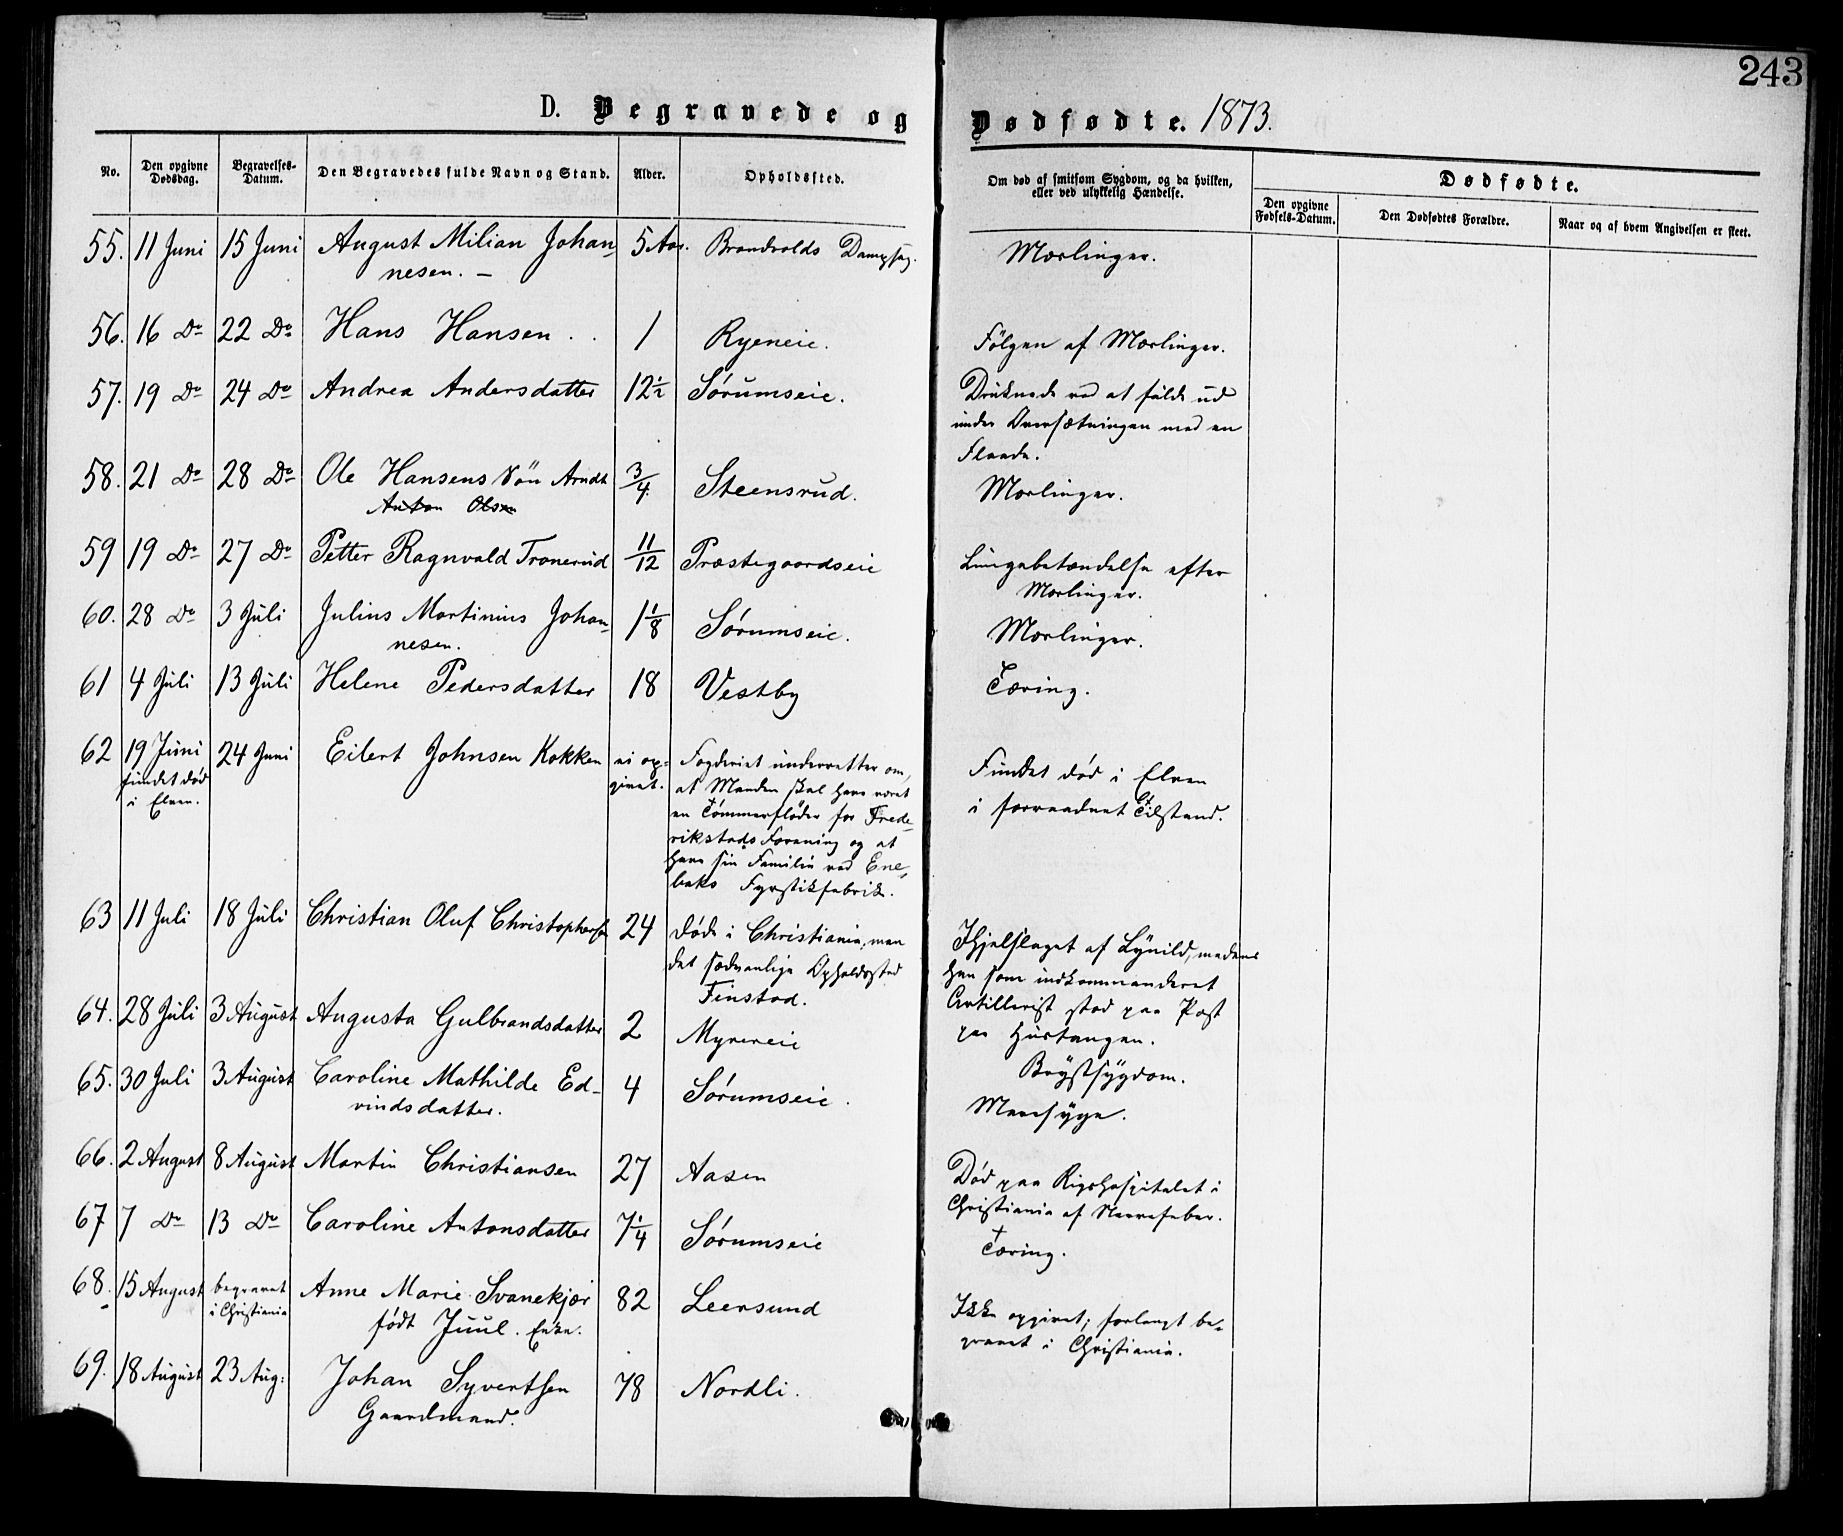 243
D. Begravede og Dødfødte. 1873.
No. Den opgivne Dødsdag. Begravelses-Datum. Den Begravedes fulde Navn og Stand. Alder. Opholdssted. Om død af smitsom Sygdom, og da hvilken, eller ved ulykkelig Hændelse. Dødfødte.
Den opgivne Fødsels-Datum. Den Dødfødtes Forældre. Naar og af hvem Angivelsen er skeet.
55. 11 Juni 15 Juni August Milian Johan- 5 Aar. Brandvolds Dampsag. Mæslinger.
nesen. –
56. 16 Do 22 Do Hans Hansen . . 1 Ryeneie. Følgen af Mæslinger.
57. 19 Do 24 Do Andrea Andersdatter 12½ Sørumseie. Druknede ved at falde ud
under Oversætningen med en
Flaade.
58. 21 Do 28 Do Ole Hansens Søn Arndt 3/4 Steensrud. Mæslinger.
Anton Olsen
59 19 Do 27 Do Petter Ragnvald Tronerud 11/12 Præstegaardseie Lungebetændelse efter
Mæslinger.
60. 28 Do 3 Juli Julius Martinius Johan- 1 1/8 Sørumseie. Mæslinger.
nesen.
61 4 Juli 13 Juli Helene Pedersdatter 18 Vestby Tæring.
62 19 Juni 24 Juni Eilert Johnsen Kokken ei op- Fogderiet underretter om, Fundet død i Elven
fundet død givet. at Manden skal have været i forraadnet Tilstand.
i Elven. en Tømmerfløder for Frede-
rikstads Forening og at
have sin Familie ved Ene-
baks Fyrstikfabrik.
63 11 Juli 18 Juli Christian Oluf Christophersen 24 døde i Christiania, men Ihjelslaget af Lynild, medens
det sædvanlige Opholdssted han som indkommanderet
Finstad. Artillerist stod paa Post
64. 28 Juli 3 August Augusta Gulbrandsdatter 2 Myrereie paa Hustangen.
Brystsygdom.
65. 30 Juli 3 August Caroline Mathilde Ed- 4 Sørumseie. Mavesyge.
vindsdatter.
66. 2 August 8 August Martin Christiansen 27 Aasen Død paa Rigshospitalet i
Christiania af Nervefeber.
67 7 Do 13 Do Caroline Antonsdatter 7 1/4 Sørumseie Tæring.
68. 15 August begravet Anne Marie Svanekjør 82 Leersund Ikke opgivet; forlangt be-
i Christiania født Juul. Enke. gravet i Christiania.
69. 18 August 23 Aug: Johan Syvertsen 78 Nordli.
Gaardmand.